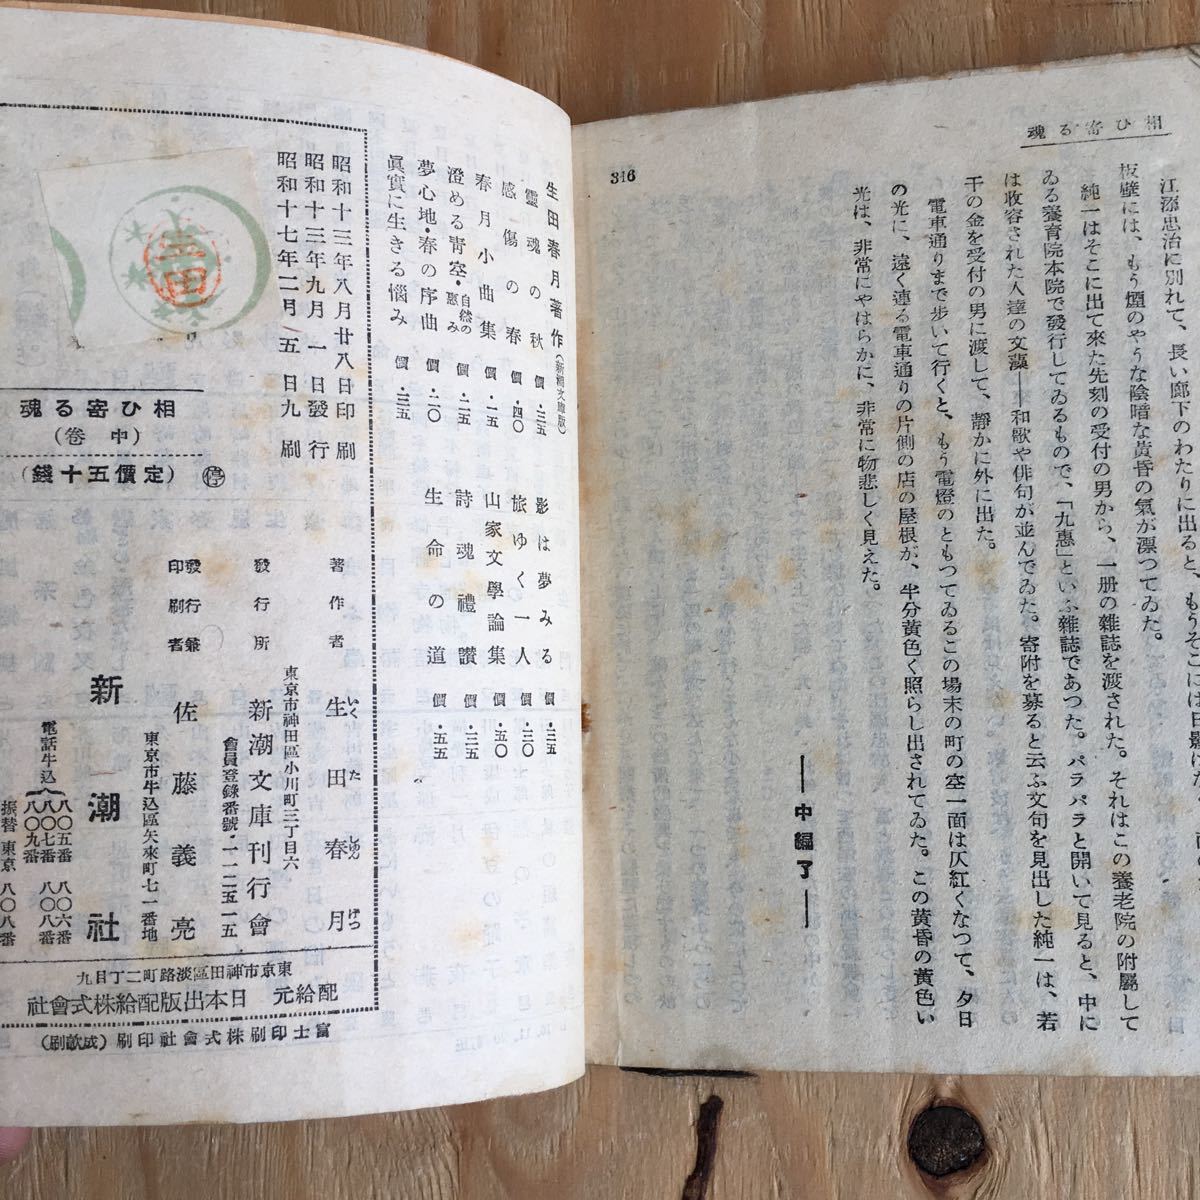 相ひ寄る魂
江添忠治に別れて、長い廊下のわたりに出ると、もうそこには日影は
板壁には、もう煙のやうな陰暗な黄昏の氣が漂つてゐた。
純一はそこに出て來た先刻の受付の男から、一册の雜誌を渡された。それはこの養老院の附屬して
ゐる養育院本院で發行してゐるもので、「九惠」といふ雜誌であつた。パラパラと開いて見ると、中に
は收容された人達の文藻――和歌や俳句が並んでゐた。寄附を募ると云ふ文句を見出した純一は、若
干の金を受付の男に渡して、靜かに外に出た。
電車通りまで步いて行くと、もう電燈のともつてゐるこの場末の町の空一面は仄紅くなつて、夕日
の光に、遠く連る電車通りの片側の店の屋根が、半分黄色く照らし出されてゐた。この黄昏の黄色い
光は、非常にやはらかに、非常に物悲しく見えた。
――中編了――
316
生田春月著作（新潮文庫版）
靈魂の秋 價・三五
感傷の春 價・四〇
春月小曲集 價・一五
澄める靑空・自然の惠み 價・二五
夢心地・春の序曲 價・二〇
眞實に生きる惱み 價・三五
影は夢みる 價・三五
旅ゆく一人 價・三〇
山家文學論集 價・五〇
詩魂禮讚 價・三五
生命の道 價・五五
昭和十三年八月廿八日印刷
昭和十三年九月一日發行
昭和十七年二月一五日九刷
生田
相ひ寄る魂
（中卷）
（定價五十錢）
停
著作者 生田春月
いくたしゆんげつ
東京市神田區小川町三丁目六
發行所 新潮文庫刊行會
會員登錄番號・一一二五一五
發行兼印刷者 佐藤義亮
東京市牛込區矢來町七一番地
新潮社
電話牛込 八〇五番 八〇六番 八〇七番 八〇八番 八〇九番
振替 東京 八〇八番
東京市神田區淡路町二丁目九
配給元 日本出版配給株式會社
富士印刷株式會社印刷